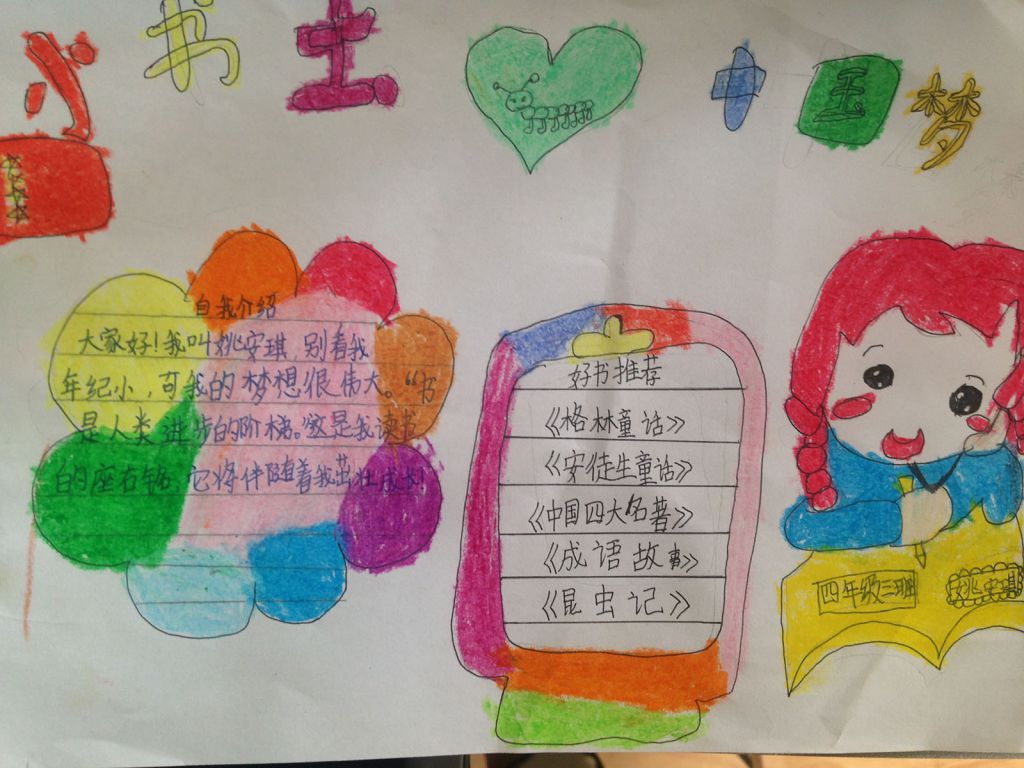 小书士 中国梦
自我介绍
大家好！我叫姚安琪，别看我
年纪小，可我的梦想很伟大。“书
是人类进步的阶梯。”这是我读书
的座右铭，它将伴随着我茁壮成长！
好书推荐
《格林童话》
《安徒生童话》
《中国四大名著》
《成语故事》
《昆虫记》
四年级三班
姚安琪